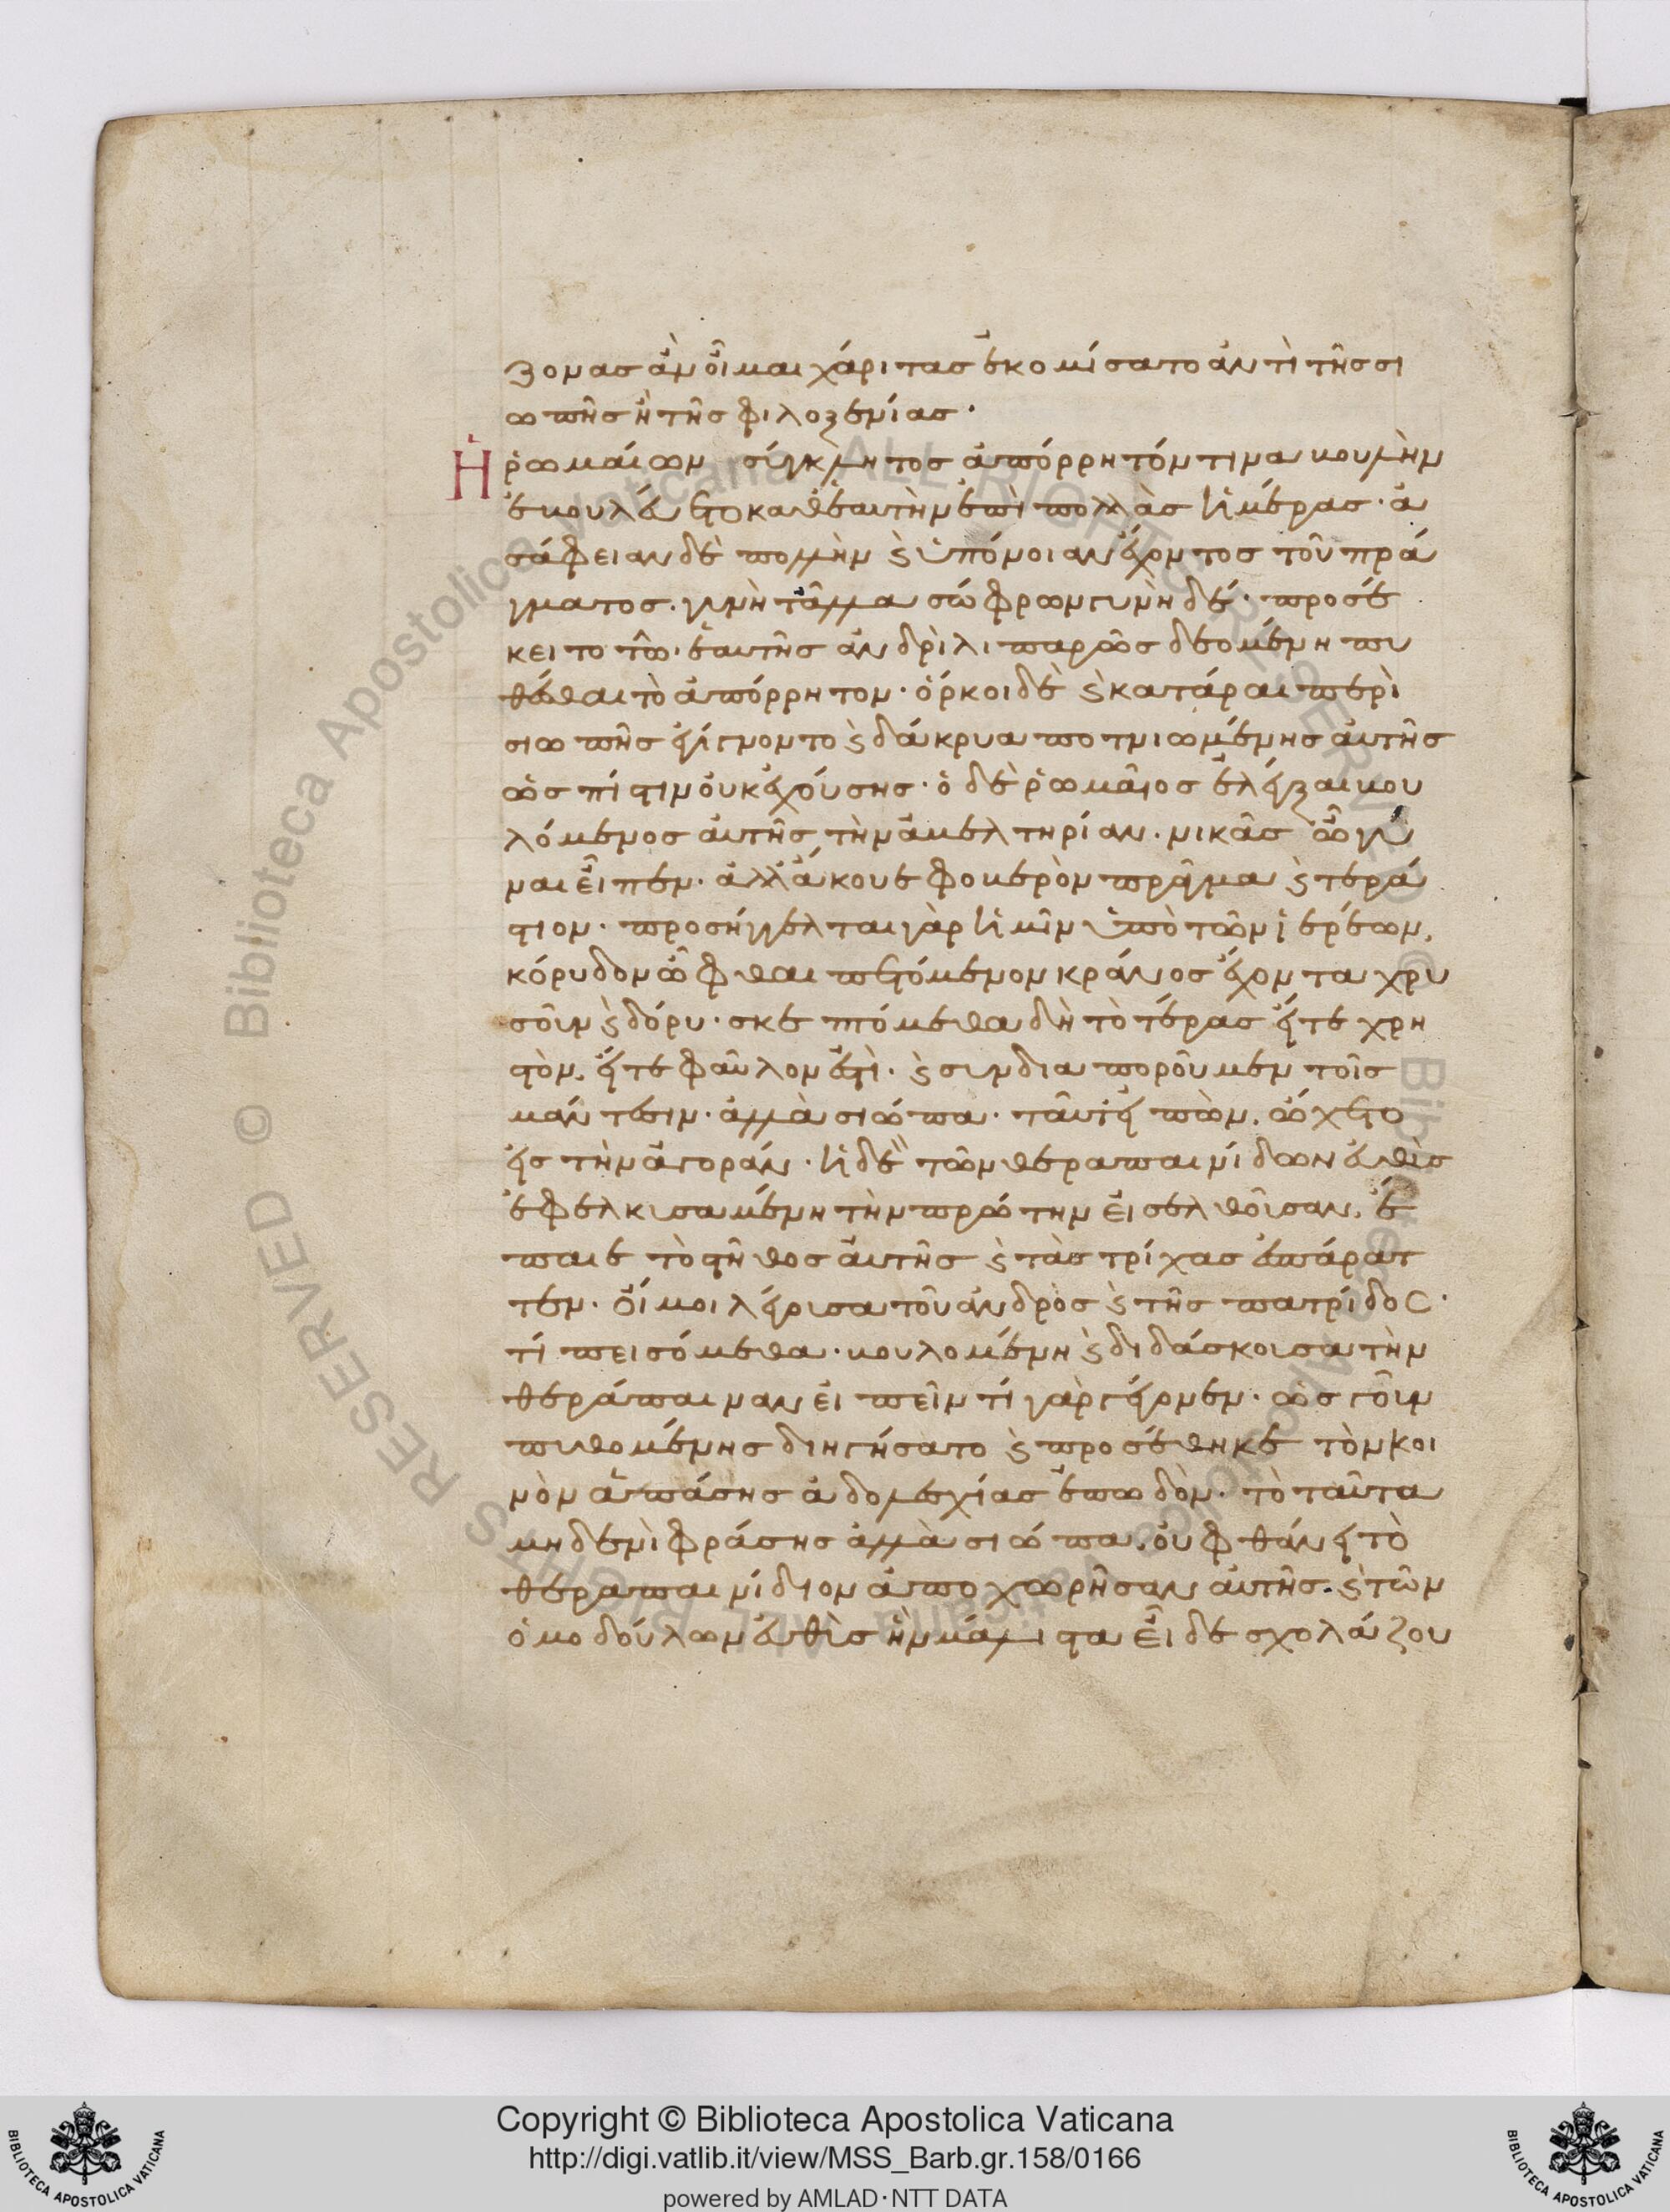 ξονας ἀν οἶμαι χάριτας ἐκομίσατο ἀντὶ τῆς σι
ωπῆς ἢ τῆς φιλοξενίας·
Ἡ ῥωμαίων σύγκλητος ἀπόρρητόν τινα βουλὴν
ἐβουλεύετο καθ ἑαυτὴν ἐπὶ πολλὰς ἡμέρας· ἀ
σάφειαν δὲ πολλὴν ϗ ὑπόνοιαν ἔχοντος τοῦ πρά
γματος· γυνὴ τἆλλα σώφρων γυνὴ δέ· προσέ
κειτο τῶ· ἑαυτῆς ἀνδρὶ λιπαρῶς δεομένη πυ
θέσθαι τὸ ἀπόρρητον· ὅρκοι δὲ ϗ κατάραι περὶ
σιωπῆς ἐγίγνοντο ϗ δάκρυα ποτνιωμένης αὐτῆς
ὡς πίστιν οὐκ ἐχούσης· ὁ δὲ ῥωμαῖος ἐλέγξαι βου
λόμενος αὐτῆς τὴν ἀβελτηρίαν· νικᾶς ὦ γύ
ναι εἶπεν· ἀλλ ἄκουε φοβερὸν πρᾶγμα ϗ τερά
στιον· προσήγγελται γὰρ ἡμῖν ὑπὸ τῶν ἱερέων,
κόρυδον ὦφθαι πετόμενον κράνος ἔχοντα χρυ
σοῦν ϗ δόρυ· σκεπτόμεθα δὴ τὸ τέρας εἴτε χρη
στὸν, εἴτε φαῦλον ἐστὶ· ϗ συνδιαποροῦμεν τοῖς
μάντεσιν· ἀλλὰ σιώπα· ταῦτ εἰπὼν, ὤχετο
εἰς τὴν ἀγοράν· ἡ δὲ τῶν θεραπαινίδων εὐθὺς
ἐφελκυσαμένη τὴν πρώτην εἰσελθοῦσαν, ἔ
παιε τὸ στῆθος αὐτῆς ϗ τὰς τρίχας ἐσπάρατ
τεν· οἴμοι λέγουσα τοῦ ἀνδρὸς ϗ τῆς πατρίδος·
τί πεισόμεθα· βουλομένη ϗ διδάσκουσα τὴν
θεράπαιναν εἰπεῖν τί γὰρ γέγονεν· ὡς γοῦν
πυθομένης διηγήσατο ϗ προσέθηκε τὸν κοι
νὸν ἁπάσης ἀδολεσχίας ἐπωδὸν· τὸ ταῦτα
μηδενὶ φράσης ἀλλὰ σιώπα, οὐ φθάνει τὸ
θεραπαινίδιον ἀποχωρῆσαν αὐτῆς, ϗ τῶν
ὁμοδούλων εὐθὺς ἣν μάλιστα εἶδε σχολάζου
Copyright © Biblioteca Apostolica Vaticana
http://digi.vatlib.it/view/MSS_Barb.gr.158/0166
powered by AMLAD·NTT DATA
BIBLIOTECA APOSTOLICA VATICANA
BIBLIOTECA APOSTOLICA VATICANA
© Biblioteca Apostolica Vaticana ALL RIGHTS RESERVED